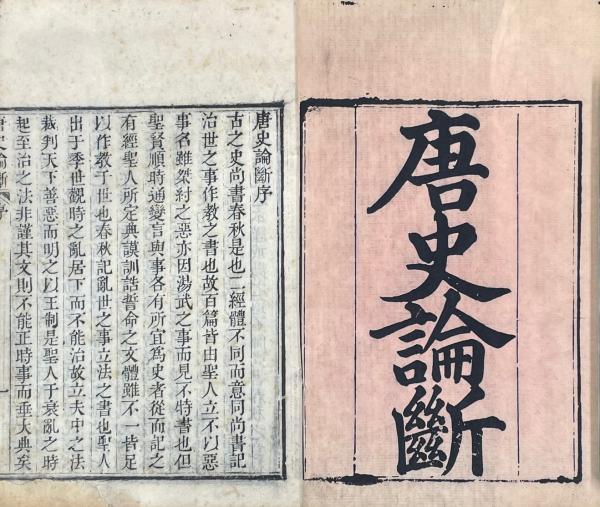 唐史論斷
唐史論斷序
古之史尚書春秋是也二經體不同而意同尚書記
治世之事作教之書也故百篇皆由聖人立不以惡
事名雖桀紂之惡亦因湯武之事而見不特書也但
聖賢順時通變言與事各有所宜為史者從而記之
有經聖人所定典謨訓誥誓命之文體雖不一皆足
以作教于世也春秋記亂世之事立法之書也聖人
出于季世觀時之亂居下而不能治故立大中之法
裁判天下善惡而明之以王制是聖人于衰亂之時
起至治之法非謹其文則不能正時事而垂大典矣
唐史論斷 序 一